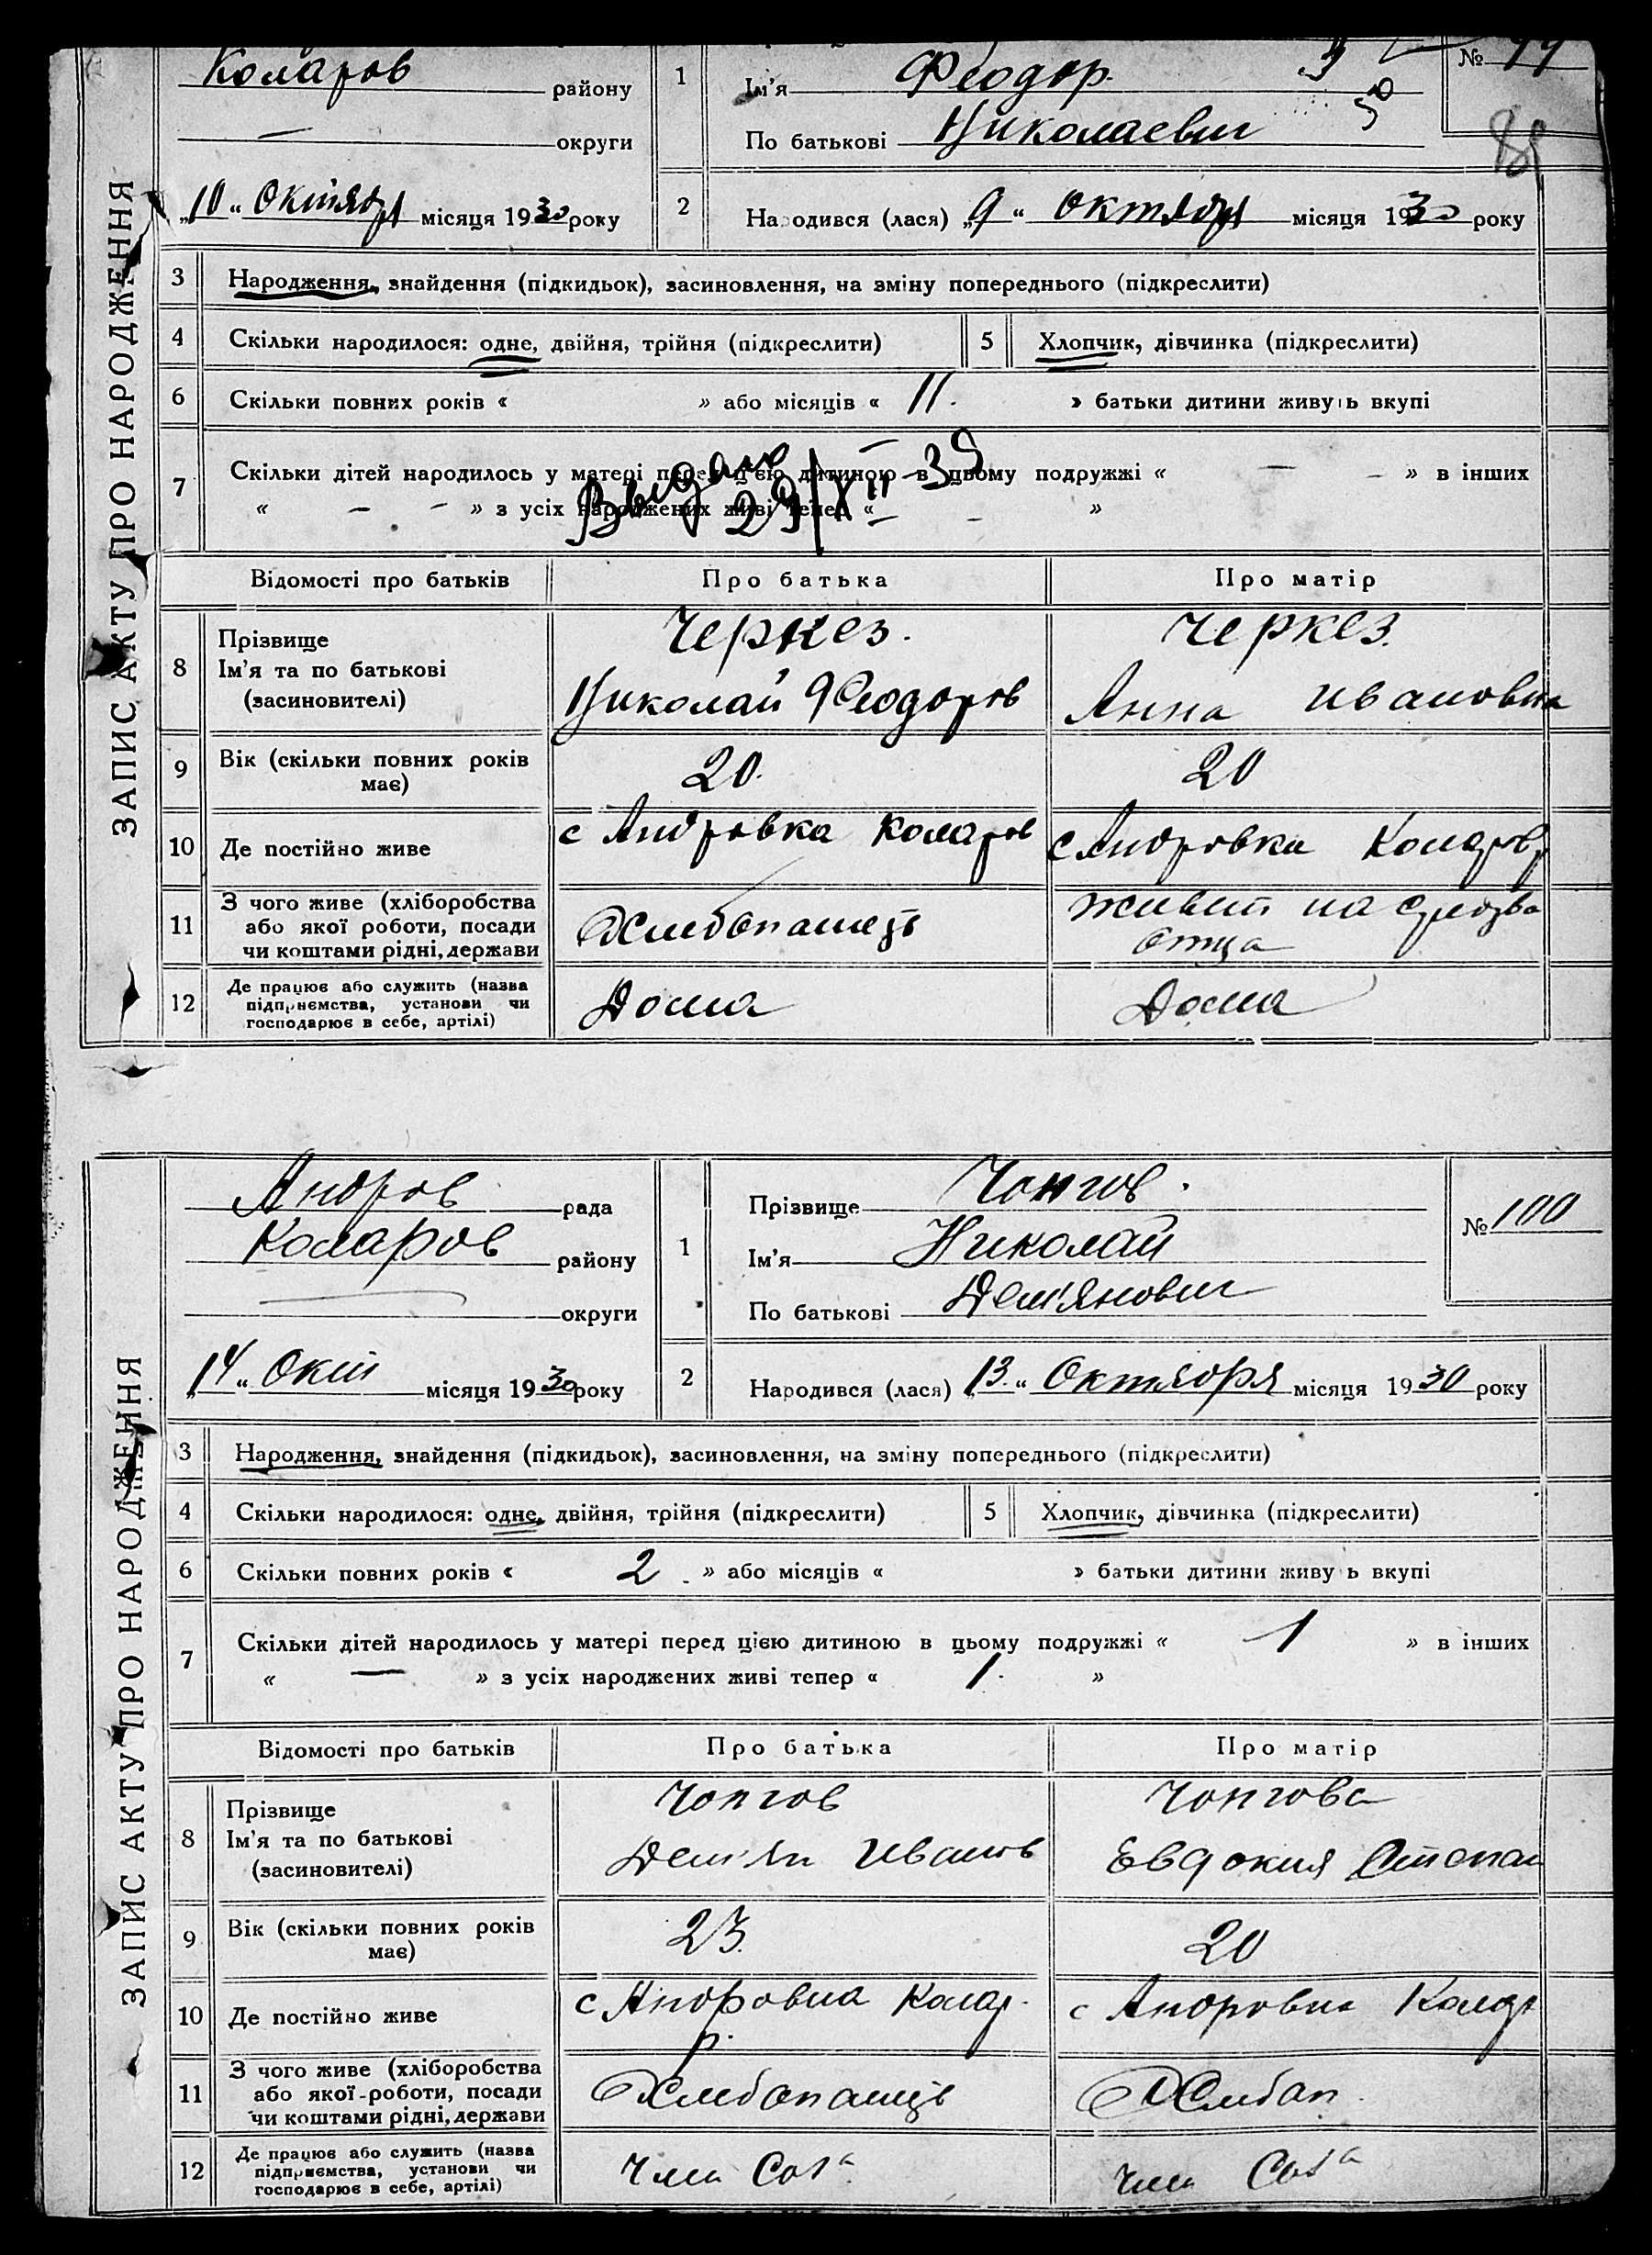 Коларов району
округи
1
Ім'я Феодор.
По батькові Николаевич
№ 99
„10“ Октября місяця 1930 року
2 Народився (лася) „9“ октября місяця 1930 року
ЗАПИС АКТУ ПРО НАРОДЖЕННЯ
3 Народження, знайдення (підкидьок), засиновлення, на зміну попереднього (підкреслити)
4 Скільки народилося: одне, двійня, трійня (підкреслити) 5 Хлопчик, дівчинка (підкреслити)
6 Скільки повних років « » або місяців « 11. » батьки дитини живуть вкупі
7 Скільки дітей народилось у матері перед цією дитиною в цьому подружжі « — » в інших
« — » з усіх народжених живі тепер « — »
Выдано
29/XII-39
Відомості про батьків Про батька Про матір
8 Прізвище
Ім'я та по батькові
(засиновителі)
Черкез.
Николай Феодоров
Черкез.
Анна Ивановна
9 Вік (скільки повних років
має)
20. 20
10 Де постійно живе с Андровка Коларов с Андровка Коларов
11 З чого живе (хліборобства
або якої роботи, посади
чи коштами рідні, держави
Хлебопашец
Живет на средства
отца
12 Де працює або служить (назва
підприємства, установи чи
господарює в себе, артілі)
Дома Дома
Андров рада
Коларов району
округи
1
Прізвище Чонгов.
Ім'я Николай
По батькові Дем'янович
№ 100
„14“ Окт місяця 1930 року
2 Народився (лася) „13.“ Октября місяця 1930 року
ЗАПИС АКТУ ПРО НАРОДЖЕННЯ
3 Народження, знайдення (підкидьок), засиновлення, на зміну попереднього (підкреслити)
4 Скільки народилося: одне, двійня, трійня (підкреслити) 5 Хлопчик, дівчинка (підкреслити)
6 Скільки повних років « 2 » або місяців « » батьки дитини живу ь вкупі
7 Скільки дітей народилось у матері перед цією дитиною в цьому подружжі « 1 » в інших
« — » з усіх народжених живі тепер « 1. »
Відомості про батьків Про батька Про матір
8 Прізвище
Ім'я та по батькові
(засиновителі)
Чонгов
Дем'ян Иванов
Чонгова
Евдокия Степан
9 Вік (скільки повних років
має)
23. 20
10 Де постійно живе с Андровка Колар. р. с Андровка Колар
11 З чого живе (хліборобства
або якої роботи, посади
чи коштами рідні, держави
Хлебопашец Хлебоп.
12 Де працює або служить (назва
підприємства, установи чи
господарює в себе, артілі)
Член Соза Член Соза